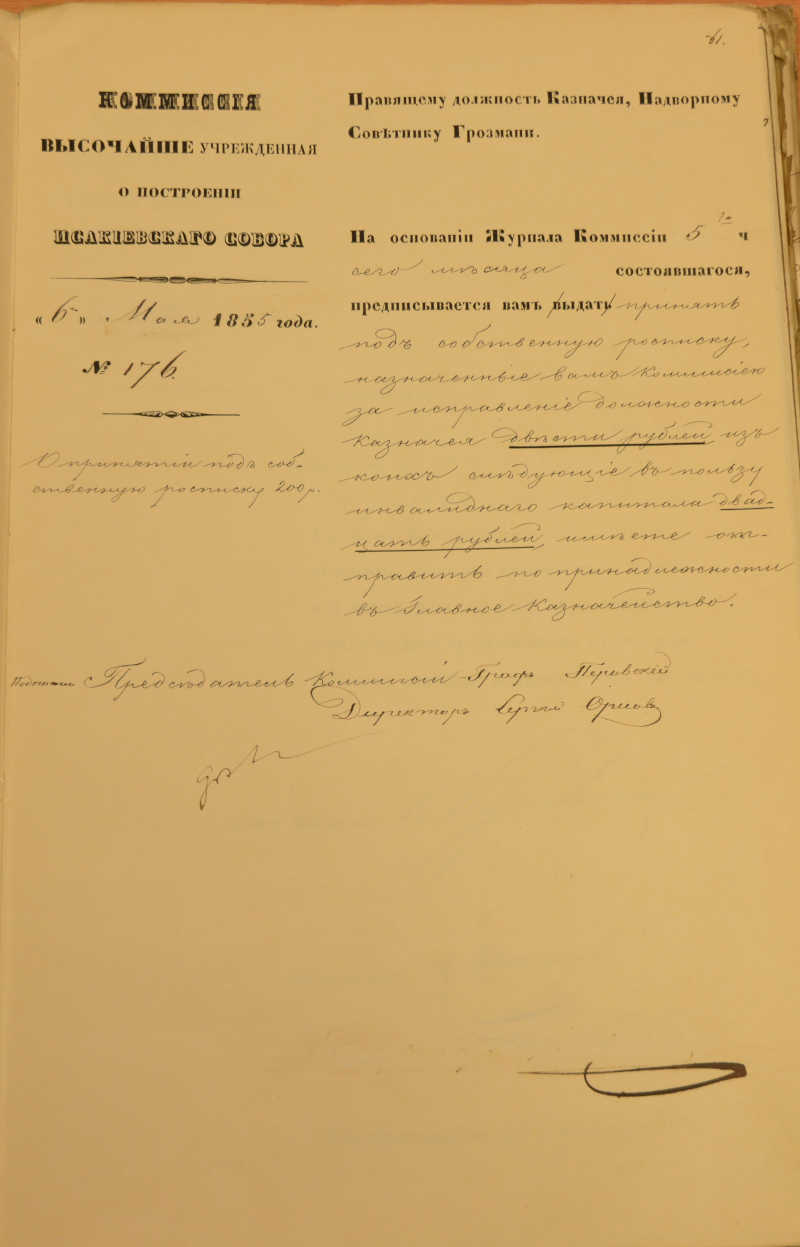 61.
КОММИССІЯ
ВЫСОЧАЙШЕ УЧРЕЖДЕННАЯ
О ПОСТРОЕНІИ
ИСАКІЕВСКАГО СОБОРА
«6» Мая 1855 года.
№ 176.
О принятіи подъ соб-
ственную росписку 200 р.
Правящему должность Казначея, Надворному
Совѣтнику Грозманн.
На основаніи Журнала Коммиссіи 5 ч
сего мѣсяца состоявшагося,
предписывается вамъ выдать принять
подъ собственную росписку,
назначенные вамъ Коммисіею
за исправленіе должности
Казначея двѣсти рублей, изъ
коихъ слѣдующіе въ пользу
инвалиднаго капитала двад-
цать рублей, имѣете от-
править по принадлежности
въ Главное Казначейство.
Предсѣдатель Коммисіи Графъ Перовскій
Директоръ Сергѣй Орловъ